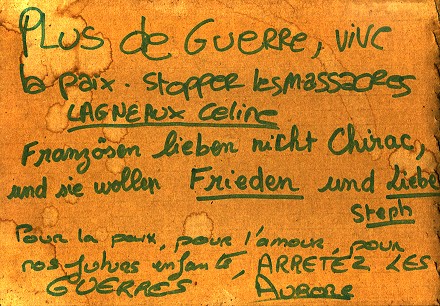 PLUS de GUERRE, vive
la paix. stopper les massacres
LAGNEAUX Celine
Französen lieben nicht Chirac,
und sie wollen Frieden und Liebe
Steph
Pour la paix, pour l'amour, pour
nos futurs enfants, ARRETEZ LES
GUERRES Aurore